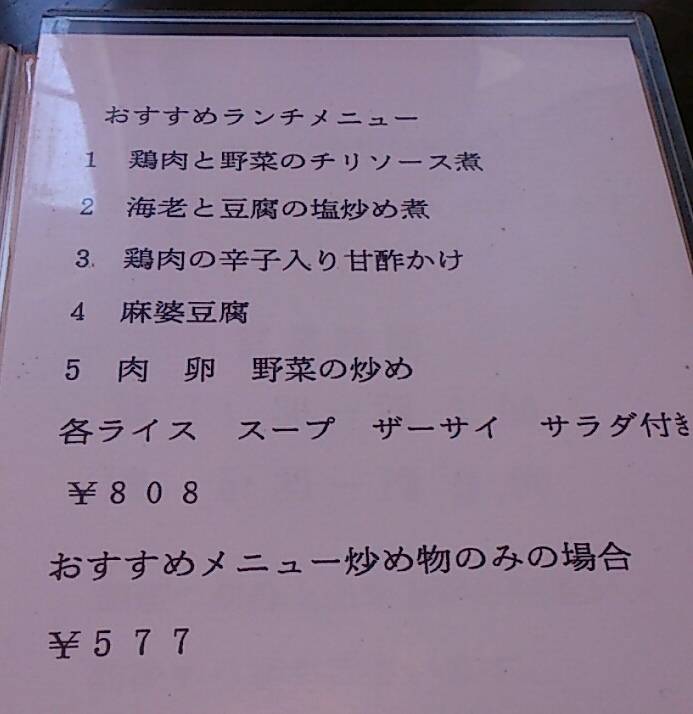 おすすめランチメニュー
1　鶏肉と野菜のチリソース煮
2　海老と豆腐の塩炒め煮
3.　鶏肉の辛子入り甘酢かけ
4　麻婆豆腐
5　肉　卵　野菜の炒め
各ライス　スープ　ザーサイ　サラダ付き
￥８０８
おすすめメニュー炒め物のみの場合
￥５７７